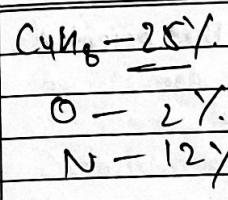 C4H8 – 25%.
O – 2%.
N – 12%